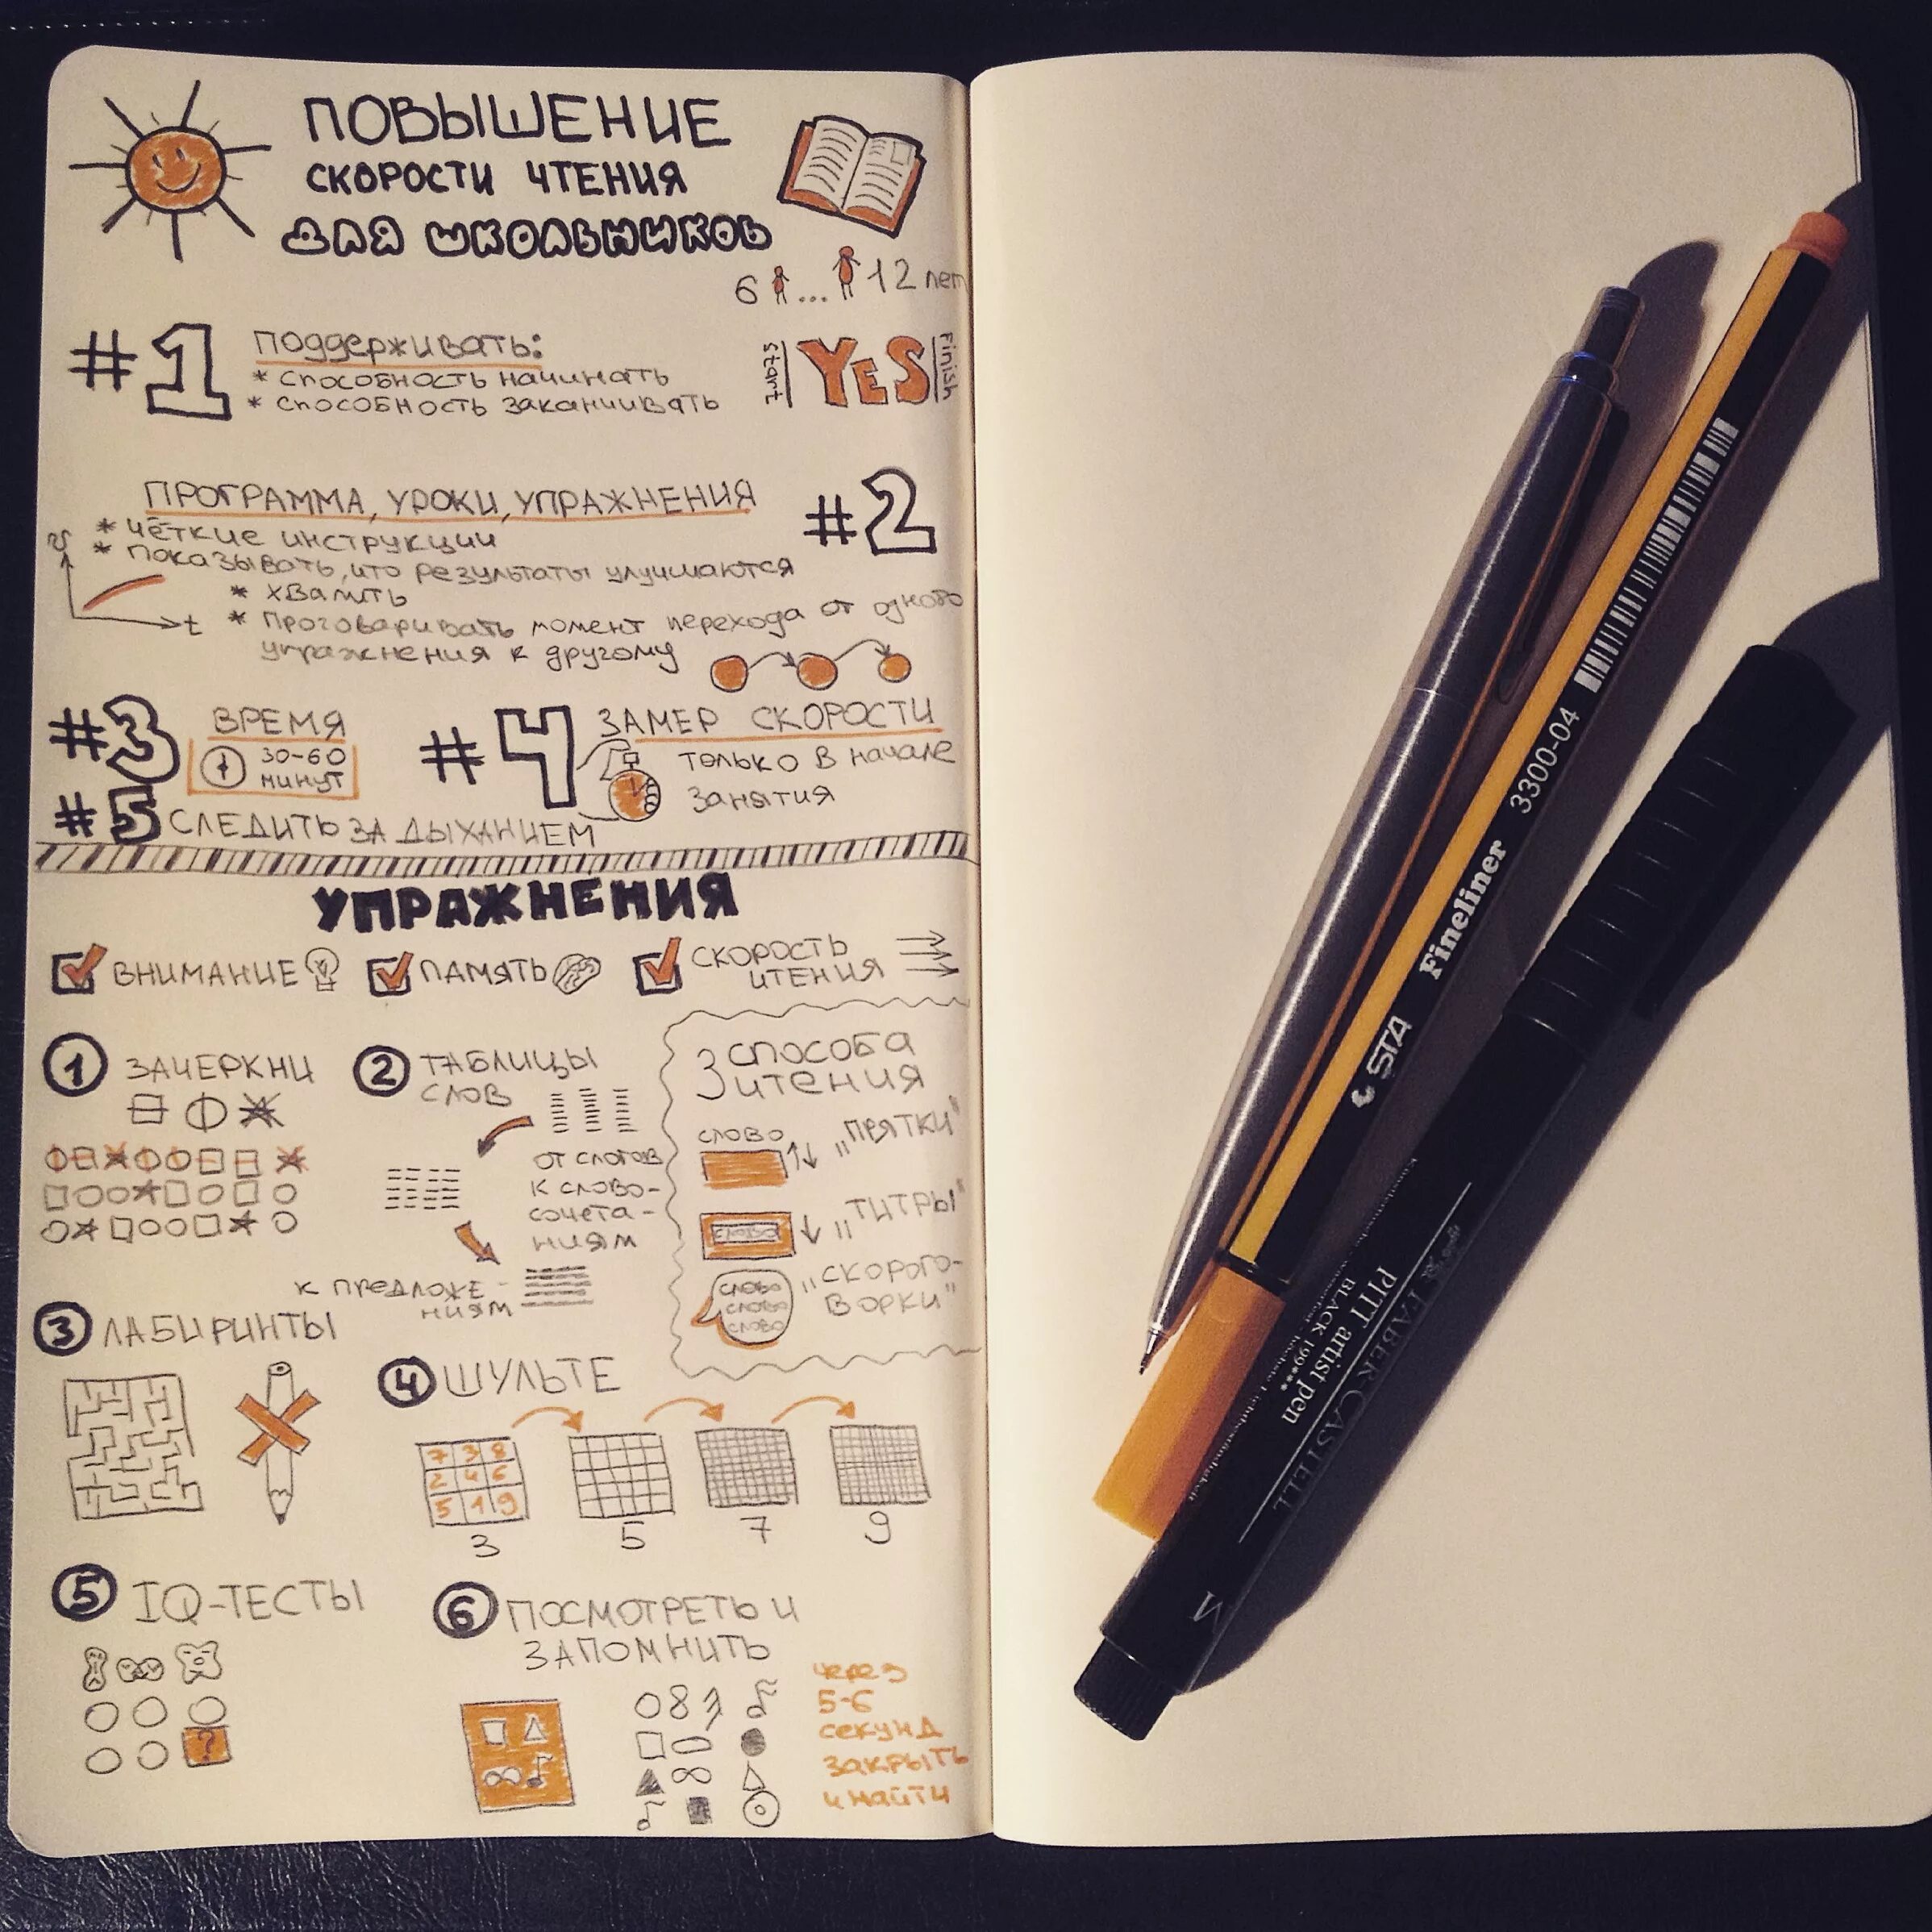 ПОВЫШЕНИЕ
СКОРОСТИ ЧТЕНИЯ
ДЛЯ ШКОЛЬНИКОВ
6 ... 12 лет
#1
Поддерживать:
* способность начинать
* способность заканчивать
start YES Finish
ПРОГРАММА, УРОКИ, УПРАЖНЕНИЯ
#2
* чёткие инструкции
* показывать, что результаты улучшаются
* хвалить
* Проговаривать момент перехода от одного
упражнения к другому
v
t
#3 ВРЕМЯ
30-60
минут
#4 ЗАМЕР СКОРОСТИ
только в начале
занятия
#5 СЛЕДИТЬ ЗА ДЫХАНИЕМ
УПРАЖНЕНИЯ
ВНИМАНИЕ ПАМЯТЬ СКОРОСТЬ
ЧТЕНИЯ
1 ЗАЧЕРКНИ
2 ТАБЛИЦЫ
СЛОВ
от слогов
к слово-
сочета-
ниям
к предложе-
ниям
3 способа
чтения
слово „ПРЯТКИ"
слово „ТИТРЫ"
слово
слово
слово
„СКОРОГО-
ВОРКИ"
3 ЛАБИРИНТЫ
4 ШУЛЬТЕ
7 3 8
2 4 6
5 1 9
3 5 7 9
5 IQ-ТЕСТЫ
?
6 ПОСМОТРЕТЬ И
ЗАПОМНИТЬ
через
5-6
секунд
закрыть
и найти
STA Fineliner 3300-04
FABER CASTELL
PITT artist pen
BLACK 199***
M